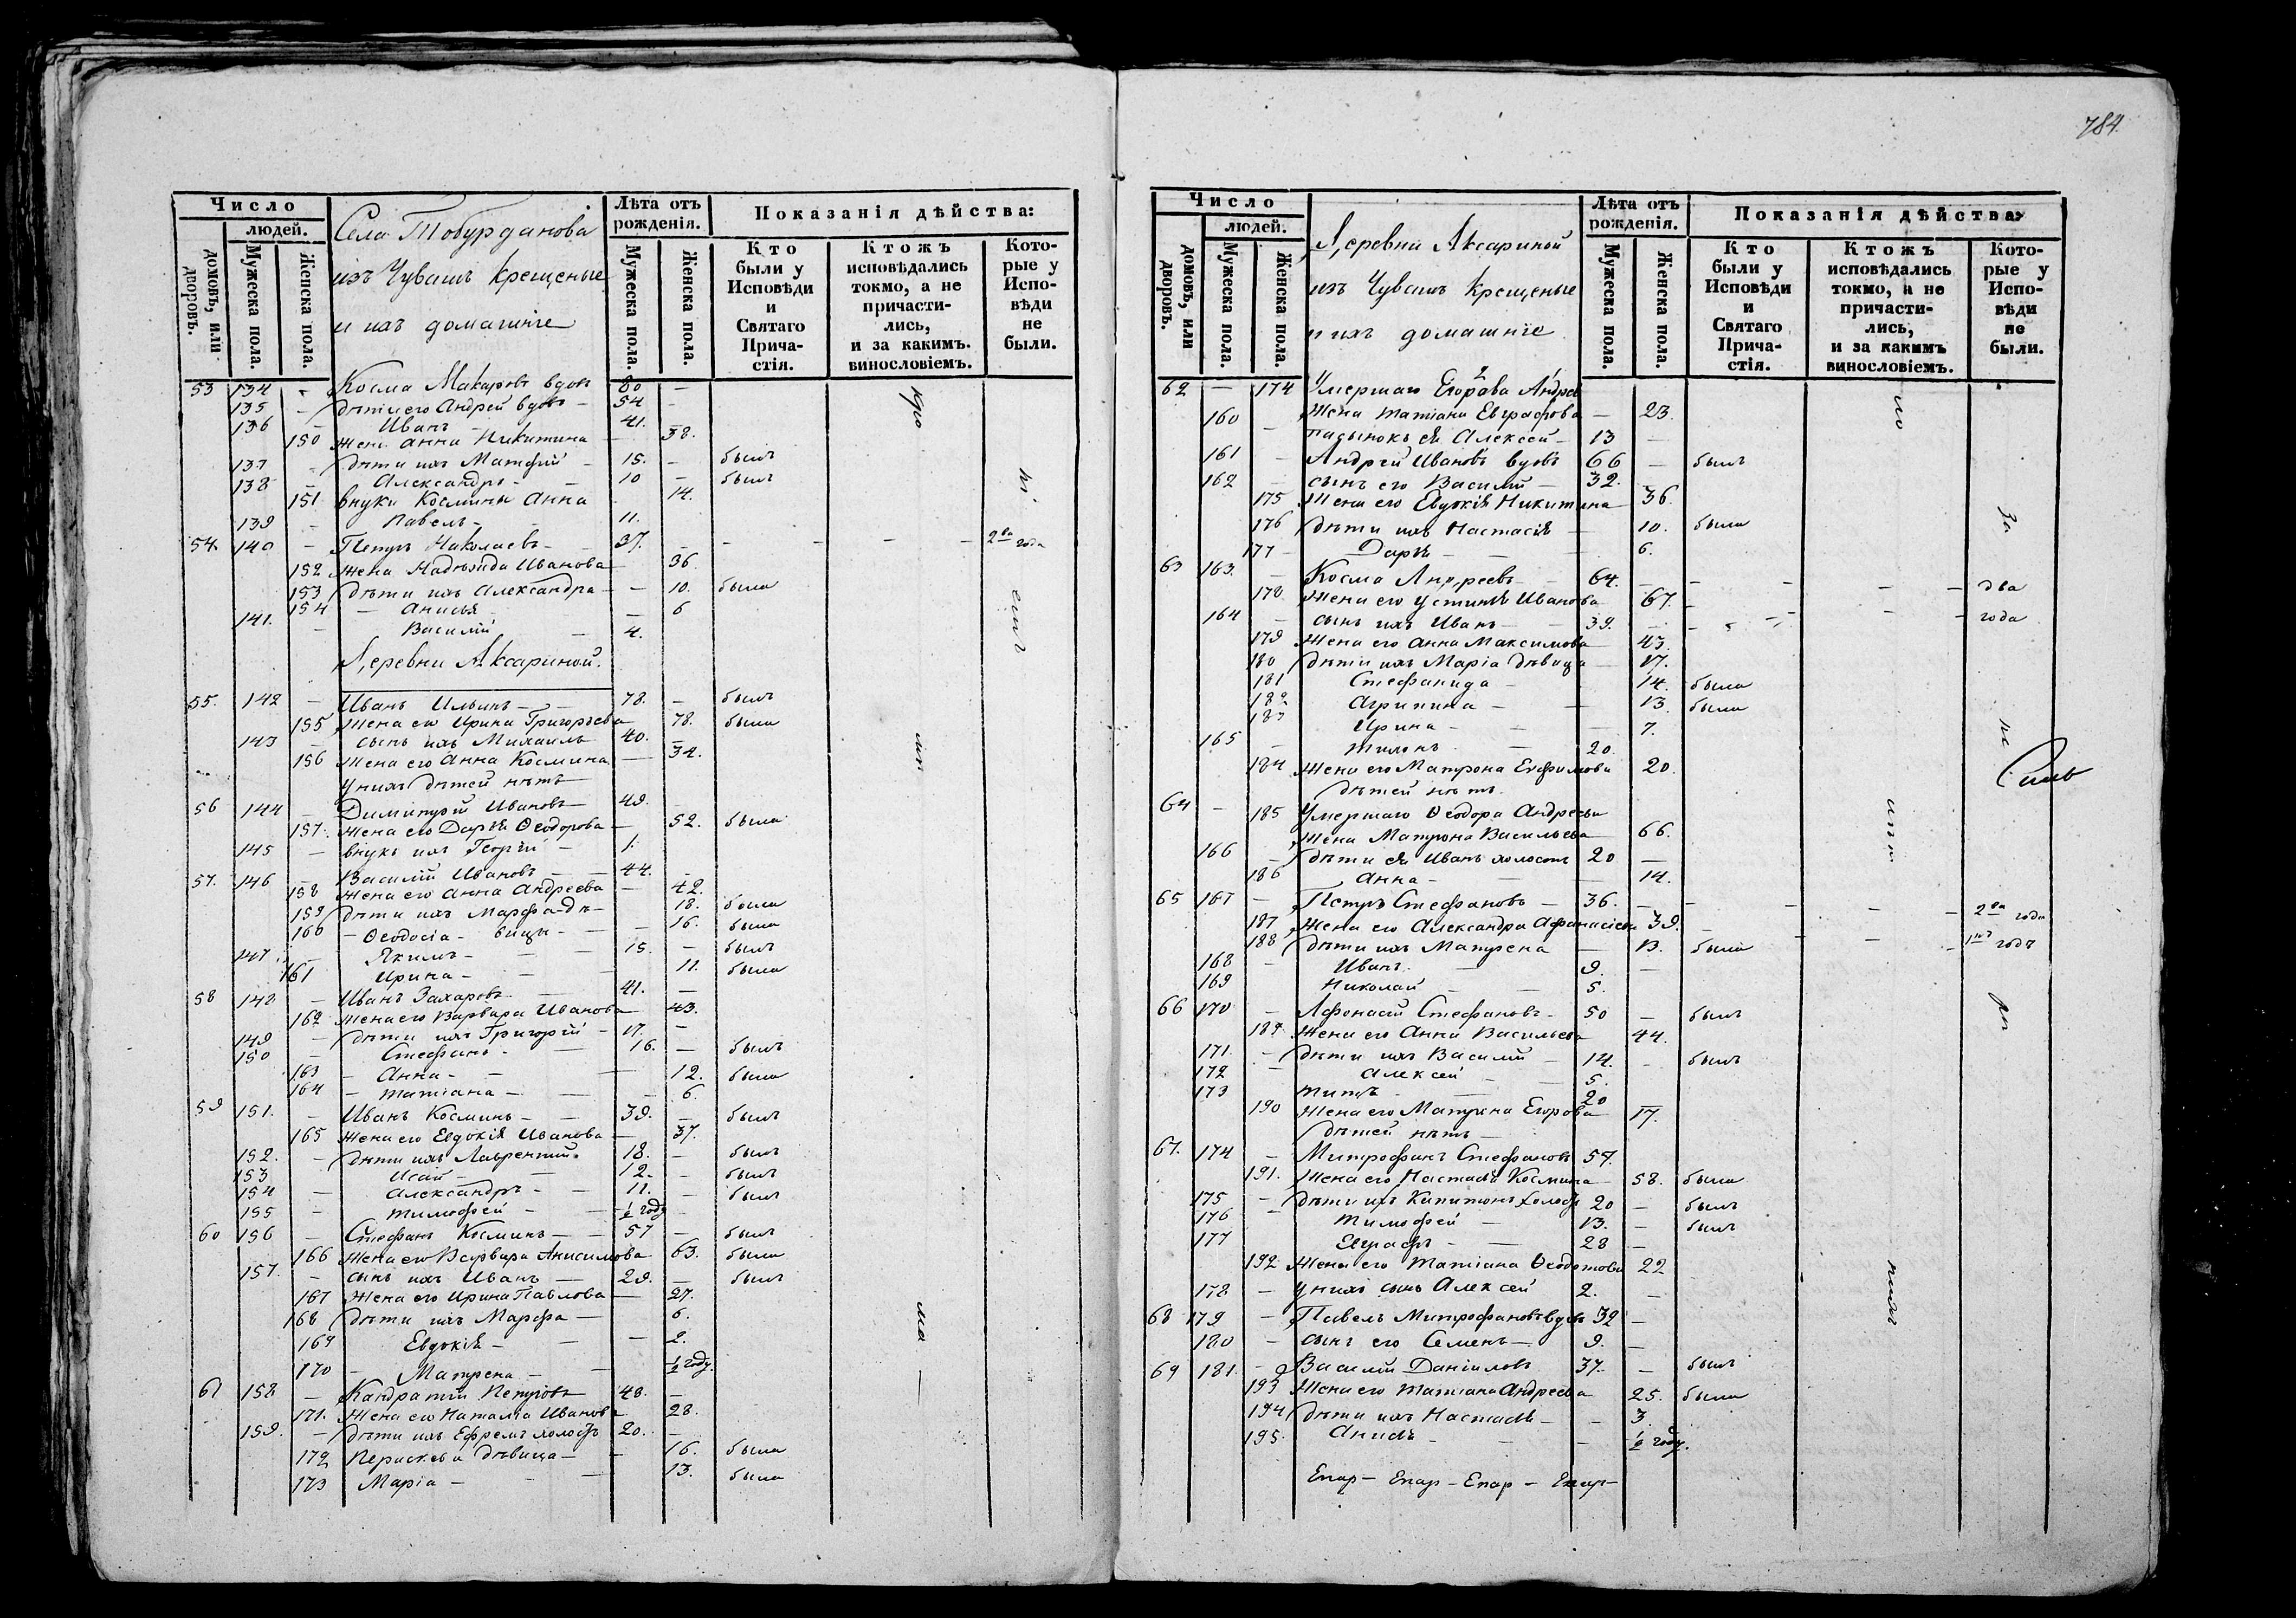 784.
Число
людей.
домовъ, или дворовъ.
Мужеска пола.
Женска пола.
Села Тобурданова
изъ Чувашъ крещеные
и ихъ домашніе
Лѣта отъ рожденія.
Мужеска пола.
Женска пола.
Показанія дѣйства:
Кто были у Исповѣди и Святаго Причастія.
Ктожъ исповѣдались токмо, а не причастились, и за какимъ винословіемъ.
Которые у Исповѣди не были.
53 134 - Косма Макаровъ вдовъ 80 -
135 - дѣти его Андрей вдовъ - 54 -
136 - Иванъ 41. -
150 жена Анна Никитина - 38.
137 - дѣти ихъ Матфій - 15. - былъ
138 - Александръ - 10 - былъ
151 внуки Космины Анна 14.
139 - Павелъ - 11.
54. 140 - Петръ Николаевъ - 37. - - - - 2ва года
152 жена Надѣжда Иванова 36.
153 дѣти ихъ Александра - - 10. была
154 - Анисья - 6
141. - Василій - 4.
Деревни Аксариной.
55. 142 - Иванъ Ильинъ - 78. - былъ
155 жена его Ирина Григорьева 78. была
143 - сынъ ихъ Михаилъ 40. -
156 жена его Анна Космина - 34.
у нихъ дѣтей нѣтъ
56 144 - Димитрій Ивановъ - 49. -
157. жена его Дарья Ѳеодорова - 52. была
145 - внукъ ихъ Георгій - 1.
57. 146 - Василій Ивановъ - 44. -
158 жена его Анна Андреева - 42.
159 дѣти ихъ Марфа дѣ- 18. была
160 - Ѳеодосіа - вицы - - 16. была
147 - Якимъ - 15. - былъ
161 Ирина - - 11. была
58 148 - Иванъ Захаровъ - 41. -
162 жена его Варвара Иванова 43.
149 - дѣти ихъ Григорій - 17. -
150 - Стефанъ - 16. - былъ
163 - Анна - - 12. была
164 - Татіана - - 6.
59 151. - Иванъ Косминъ - 39. - былъ
165 жена его Евдокія Иванова - 37.
152. - дѣти ихъ Лаврентій 18. - былъ
153 Исай - 12. - былъ
154 - Александръ - 11. - былъ
155 - Тимофей - 1/2 году
60 156 - Стефанъ Косминъ - 57 - былъ
166 жена его Варвара Анисимова 63. была
157. - сынъ ихъ Иванъ - 29. - былъ
167 жена его Ирина Павлова - 27.
168 дѣти ихъ Марфа - 6.
169 Евдокія - - 2.
170 - Матрена - - 1/2 году.
61 158 - Кандратій Петровъ 48. -
171. жена его Наталіа Иванова 28.
159. - дѣти ихъ Ефремъ холостъ 20. -
172 Перасковіа дѣвица - - 16. была
173 Маріа - - 13. была
Число
людей.
домовъ, или дворовъ.
Мужеска пола.
Женска пола.
Деревни Аксариной
изъ Чувашъ крещеные
и ихъ домашніе
Лѣта отъ рожденія.
Мужеска пола.
Женска пола.
Показанія дѣйства:
Кто были у Исповѣди и Святаго Причастія.
Ктожъ исповѣдались токмо, а не причастились, и за какимъ винословіемъ.
Которые у Исповѣди не были.
62 - 174 Умершаго Егорова Андрея
жена Татіана Евграфова - 23.
160 - падынокъ ея Алексей - 13 -
161 - Андрей Ивановъ вдовъ 66 - былъ
162 - сынъ его Василій - 32.
175 жена его Евдокія Никитина 36.
176 дѣти ихъ Настасія - 10. была
177 - Дарья - - 6.
63 163. - Косма Андреевъ - 64. - - - - два
178 жена его Устинья Иванова 67. - - - года
164 - сынъ ихъ Иванъ - 39. -
179 жена его Анна Максимова 43.
180 дѣти ихъ Маріа дѣвица - 17.
181 Стефанида - 14. была
182 Агрипина - - 13. была
183 Ирина - - 7.
165 - Тихонъ - 20.
184 жена его Матрона Ефимова 20.
дѣтей нѣтъ.
64 - 185 Умершаго Ѳеодора Андреева
жена Матрона Васильева 66.
166 - дѣти ея Иванъ холостъ 20 -
186 Анна - - 14.
65 167 - Петръ Стефановъ - 36. - - - - 2ва года
187 жена его Александра Афанасіева 39. - - - 1нъ годъ
188 дѣти ихъ Матрена - 13. была
168 - Иванъ - 9. -
169 Николай - 5.
66 170 - Афонасій Стефановъ - 50 - былъ
189 жена его Анна Васильева 44.
171. - дѣти ихъ Василій - 14. - былъ
172 - Алексей - 5.
173 Титъ - 20
190 жена его Матрена Егорова 17.
дѣтей нѣтъ -
67. 174 - Митрофанъ Стефановъ 57.
191. жена его Настасья Космина - 58. была
175 - дѣти ихъ Капитонъ холостъ 20 - былъ
176 - Тимофей - 13. - былъ
177 Евграфъ - 28 -
192 жена его Татіана Ѳеодотова 22
178 - у нихъ сынъ Алексей 2. -
68 179 - Павелъ Митрофановъ вдовъ 32 -
180 - сынъ его Семенъ - 9. -
69 181. - Василій Даніиловъ 37. - былъ
193 жена его Татіана Андреева 25. была
194 дѣти ихъ Настасья - - 3.
195. Анисья - - 1/2 году.